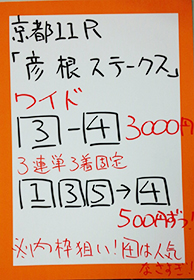 京都11R
「彦根ステークス」
ワイド
3-4 3000円
3連単3着固定
1 3 5→4
500円ずつ!
※内枠狙い!④は人気
なさすぎ!